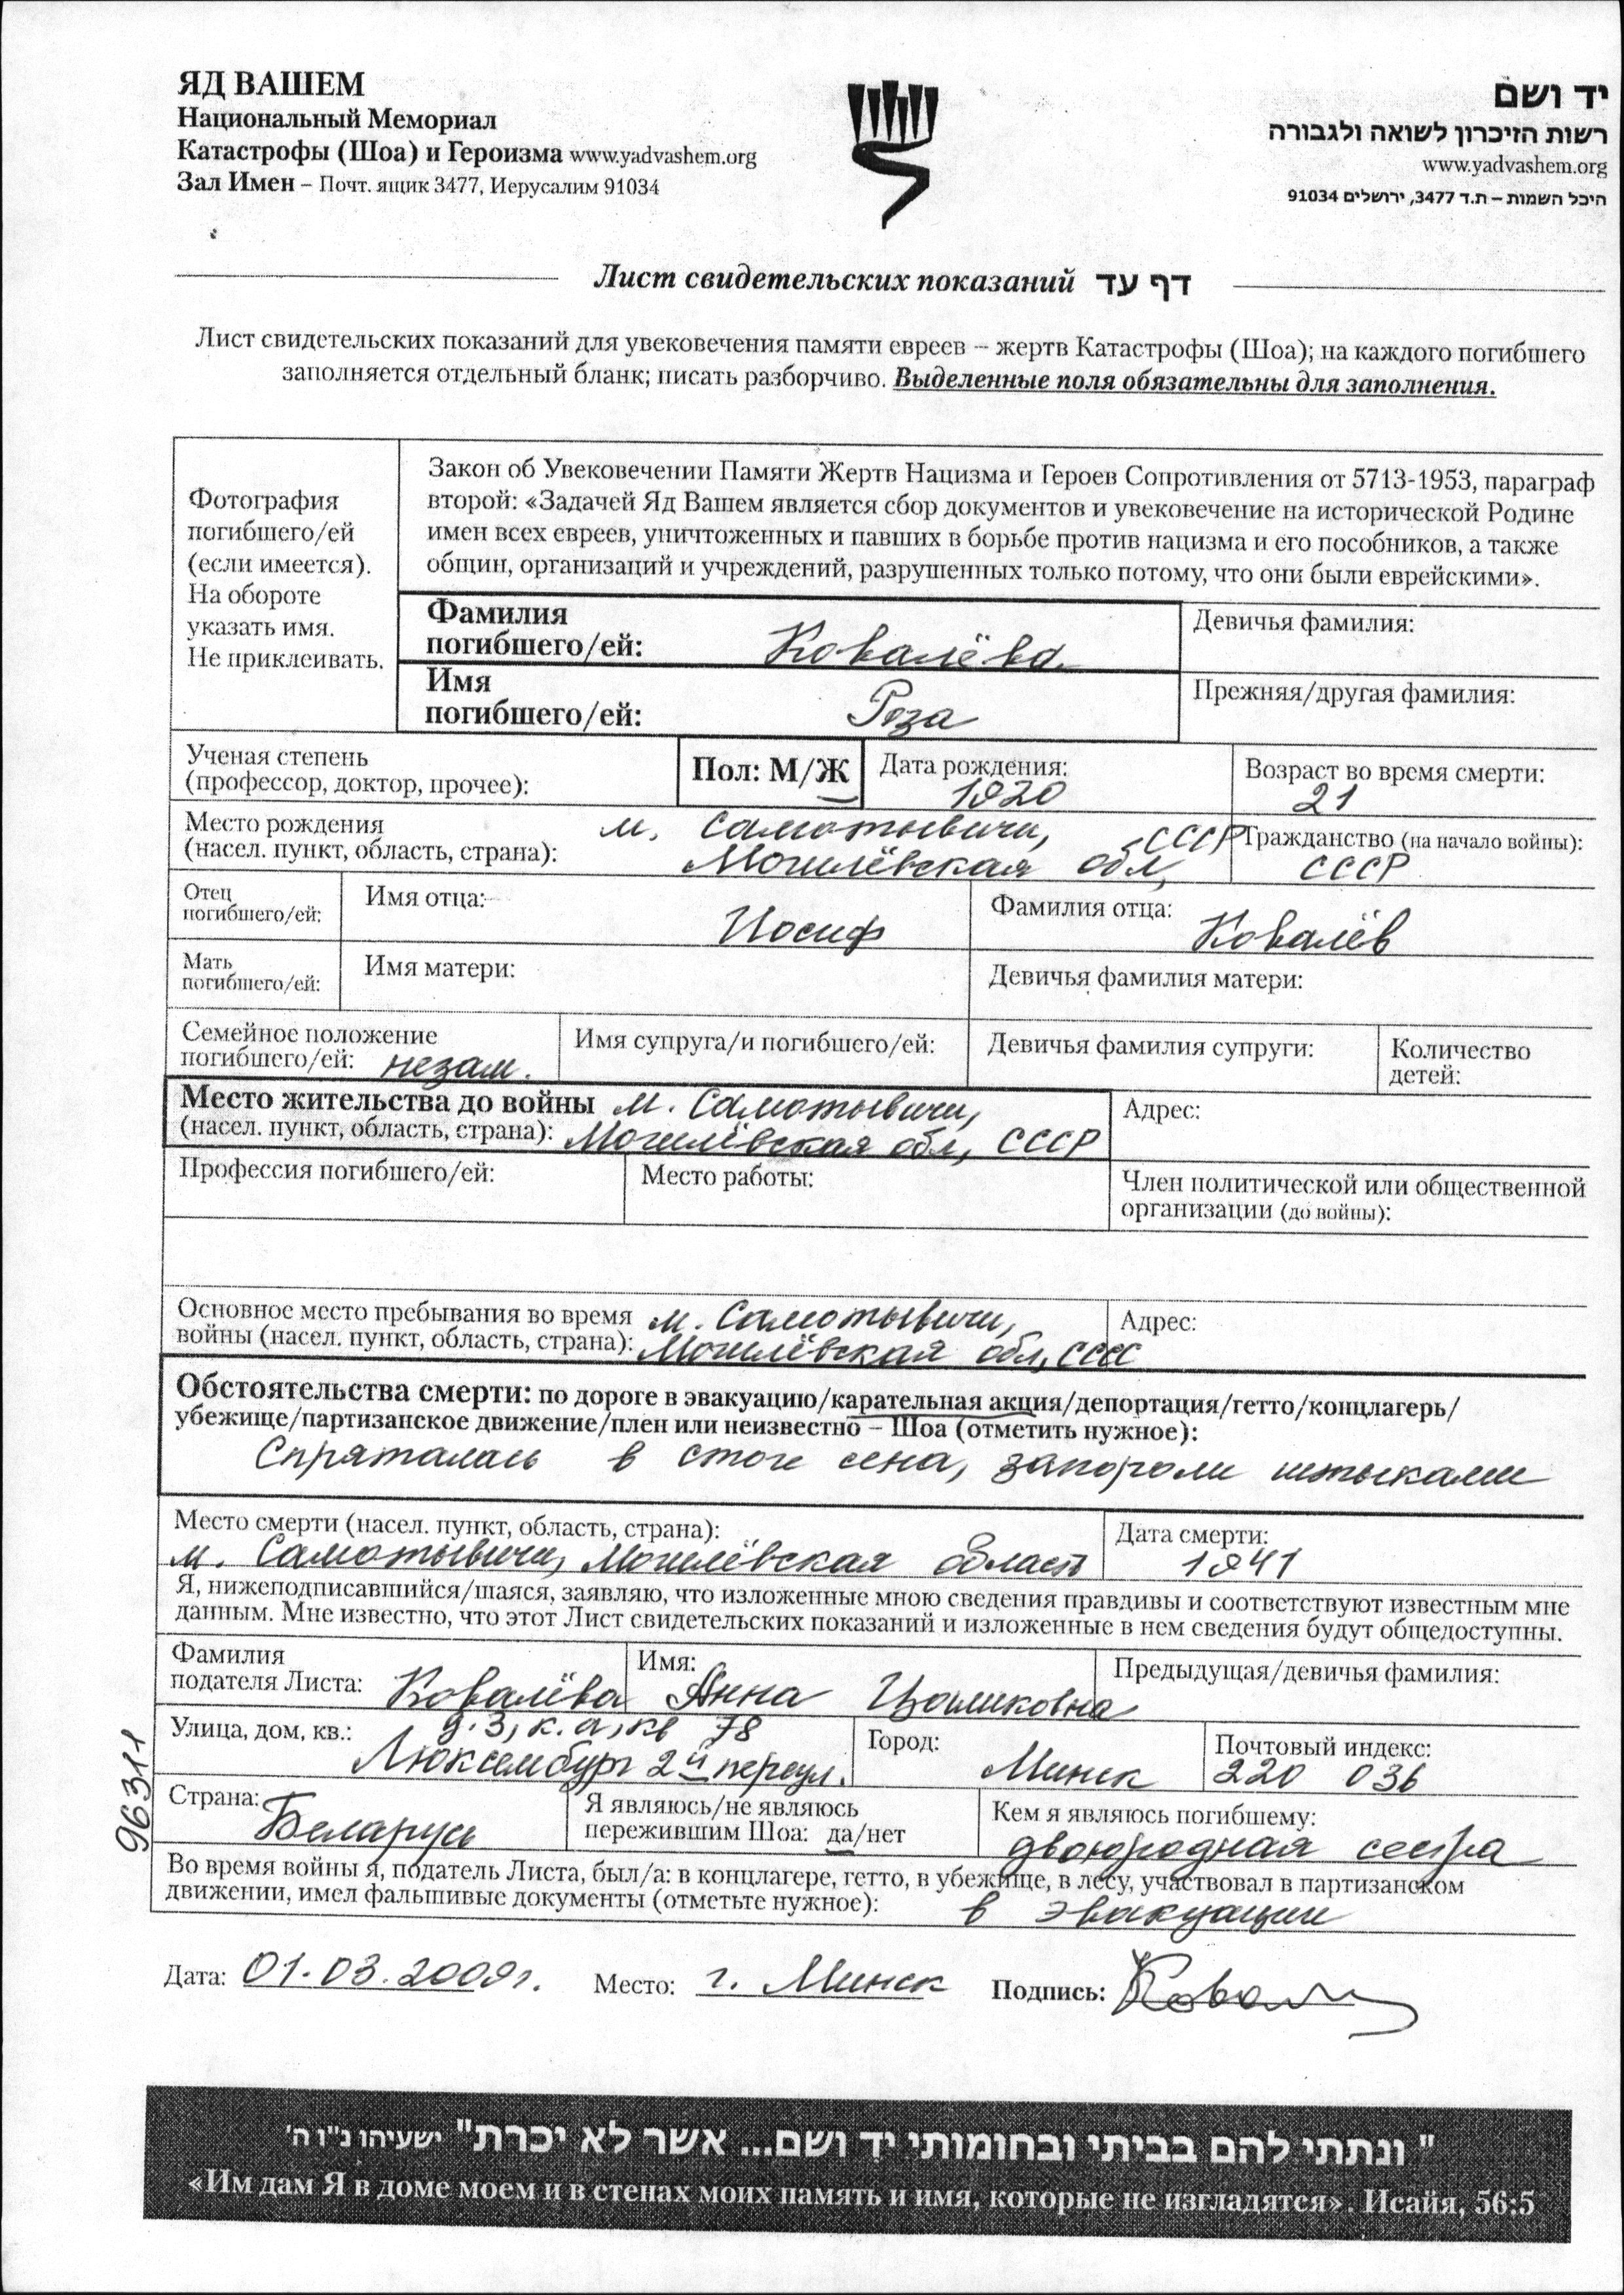 ЯД ВАШЕМ
Национальный Мемориал
Катастрофы (Шоа) и Героизма www.yadvashem.org
Зал Имен – Почт. ящик 3477, Иерусалим 91034
יד ושם
רשות הזיכרון לשואה ולגבורה
www.yadvashem.org
היכל השמות – ת.ד 3477, ירושלים 91034
Лист свидетельских показаний דף עד
Лист свидетельских показаний для увековечения памяти евреев – жертв Катастрофы (Шоа); на каждого погибшего
заполняется отдельный бланк; писать разборчиво. Выделенные поля обязательны для заполнения.
Фотография
погибшего/ей
(если имеется).
На обороте
указать имя.
Не приклеивать.
Закон об Увековечении Памяти Жертв Нацизма и Героев Сопротивления от 5713-1953, параграф
второй: «Задачей Яд Вашем является сбор документов и увековечение на исторической Родине
имен всех евреев, уничтоженных и павших в борьбе против нацизма и его пособников, а также
общин, организаций и учреждений, разрушенных только потому, что они были еврейскими».
Фамилия
погибшего/ей: Ковалёва
Девичья фамилия:
Имя
погибшего/ей: Роза
Прежняя/другая фамилия:
Ученая степень
(профессор, доктор, прочее):
Пол: М/Ж
Дата рождения:
1920
Возраст во время смерти:
21
Место рождения м. Самотывичи, СССР
(насел. пункт, область, страна): Могилёвская обл,
Гражданство (на начало войны):
СССР
Отец
погибшего/ей:
Имя отца:
Иосиф
Фамилия отца:
Ковалёв
Мать
погибшего/ей:
Имя матери:
Девичья фамилия матери:
Семейное положение
погибшего/ей: незам.
Имя супруга/и погибшего/ей:
Девичья фамилия супруги:
Количество
детей:
Место жительства до войны м. Самотывичи,
(насел. пункт, область, страна): Могилёвская обл, СССР
Адрес:
Профессия погибшего/ей:
Место работы:
Член политической или общественной
организации (до войны):
Основное место пребывания во время м. Самотывичи,
войны (насел. пункт, область, страна): Могилёвская обл, СССС
Адрес:
Обстоятельства смерти: по дороге в эвакуацию/карательная акция/депортация/гетто/концлагерь/
убежище/партизанское движение/плен или неизвестно – Шоа (отметить нужное):
Спряталась в стоге сена, запороли штыками
Место смерти (насел. пункт, область, страна):
м. Самотывичи, Могилёвская область
Дата смерти:
1941
Я, нижеподписавшийся/шаяся, заявляю, что изложенные мною сведения правдивы и соответствуют известным мне
данным. Мне известно, что этот Лист свидетельских показаний и изложенные в нем сведения будут общедоступны.
Фамилия
подателя Листа: Ковалёва
Имя:
Анна Цаликовна
Предыдущая/девичья фамилия:
Улица, дом, кв.: д. 3, к. а, кв 78
Люксембург 2й переул.
Город:
Минск
Почтовый индекс:
220 036
Страна:
Беларусь
Я являюсь/не являюсь
пережившим Шоа: да/нет
Кем я являюсь погибшему:
двоюродная сестра
Во время войны я, податель Листа, был/а: в концлагере, гетто, в убежище, в лесу, участвовал в партизанском
движении, имел фальшивые документы (отметьте нужное): в эвакуации
Дата: 01.03.2009г. Место: г. Минск Подпись: Ковал
96311
" ונתתי להם בביתי ובחומותי יד ושם... אשר לא יכרת" ישעיהו נ"ו ה'
«Им дам Я в доме моем и в стенах моих память и имя, которые не изгладятся». Исайя, 56:5